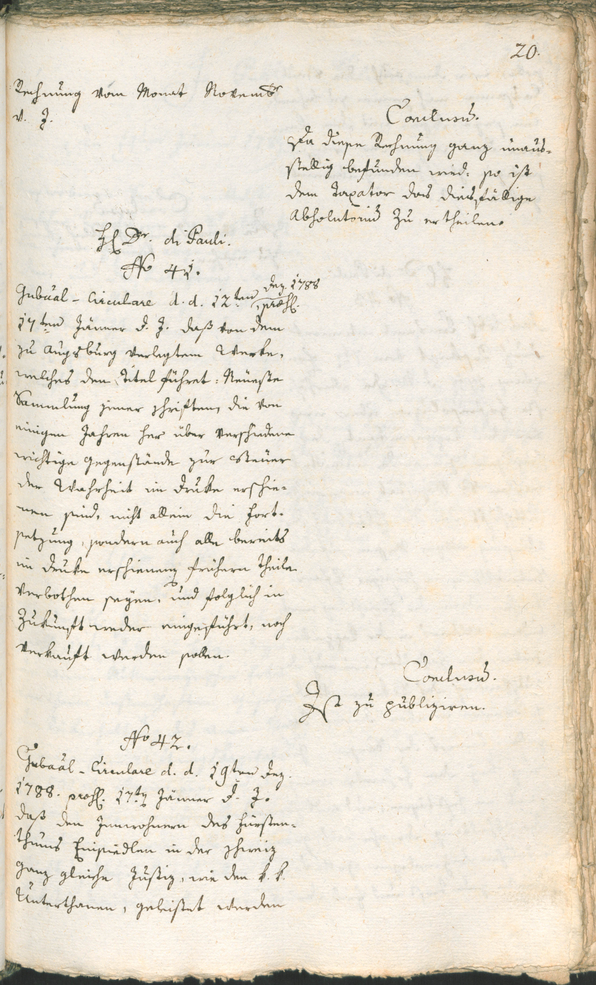 20.
Rechnung vom Monat Novemb
v. J.
Conclusum.
Da diese Rechnung ganz unaus-
stellig befunden wird: so ist
dem Taxator das diesfällige
Absolutorium zu ertheilen.
H Dr. di Pauli.
No 41.
Gubäal-Circulare d. d. 12ten Dez. 1788
präs.
17ten Jänner d. J. daß von dem
zu Augsburg verlegtem Werke,
welches den Titel führet: Neueste
Sammlung jener Schriften, die von
einigen Jahren her über verschiedene
wichtige Gegenstände zur Steuer
der Wahrheit im Drucke erschie-
nen sind, nicht allein die Fort-
setzung, sondern auch alle bereits
im Drucke erschienenen frühern Theile
verbothen seyen, und folglich in
Zukunft weder eingeführt, noch
verkauft werden sollen.
Conclusum.
Ist zu publiziren.
No 42.
Gubäal-Circulare d. d. 19ten Dez.
1788. präs. 17ten Jänner d. J.
daß den Innwohnern des Fürsten-
thums Einsiedlen in der Schweiz
ganz gleiche Justiz, wie den k. k.
Unterthanen, geleistet werden